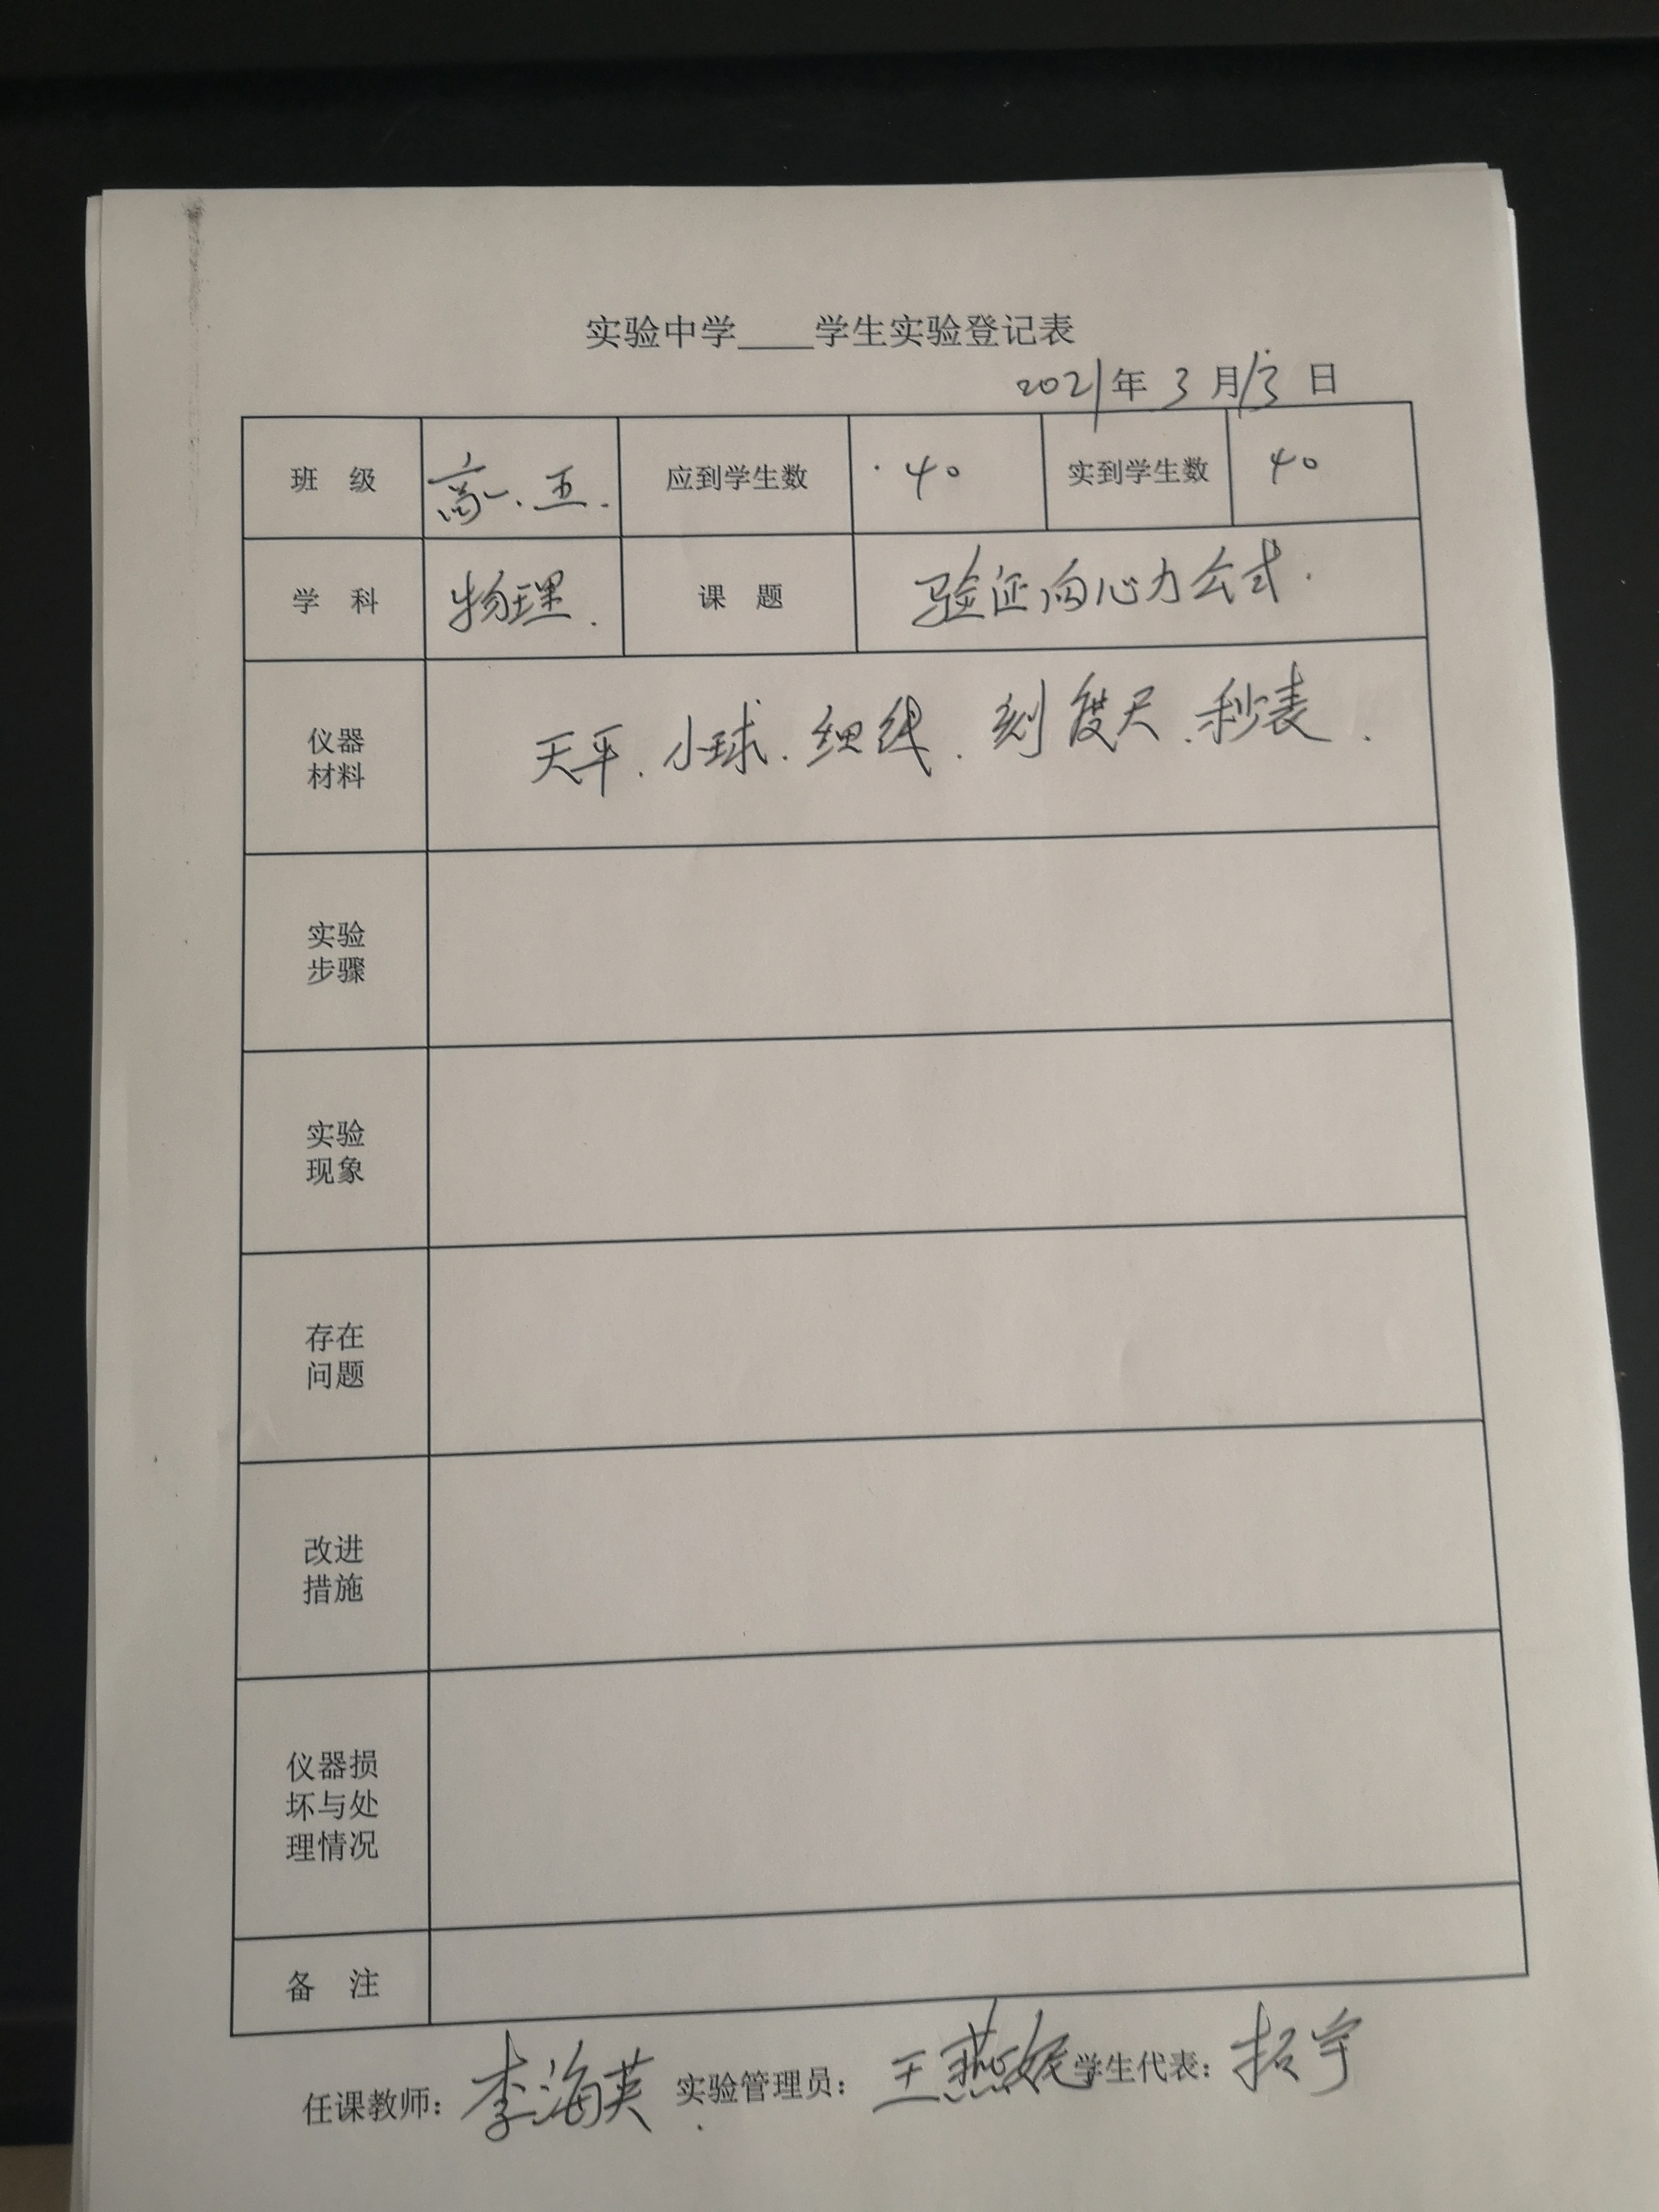 实验中学____学生实验登记表
2021年 3 月13 日
班 级 高一.五. 应到学生数 40 实到学生数 40
学 科 物理. 课 题 验证向心力公式.
仪器
材料
天平.小球.细线.刻度尺.秒表.
实验
步骤
实验
现象
存在
问题
改进
措施
仪器损
坏与处
理情况
备 注
任课教师：李海英 实验管理员：王燕妮 学生代表：拓宇